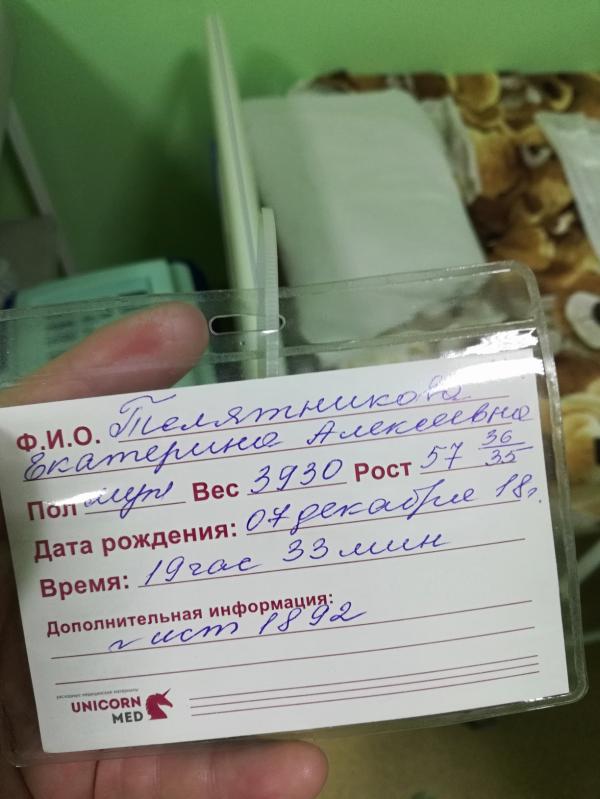 Ф.И.О. Телятникова
Екатерина Алексеевна
Пол муж Вес 3930 Рост 57 36/35
Дата рождения: 07 декабря 18г.
Время: 19 час 33 мин
Дополнительная информация:
и ист 1892
расходные медицинские материалы
UNICORN
MED